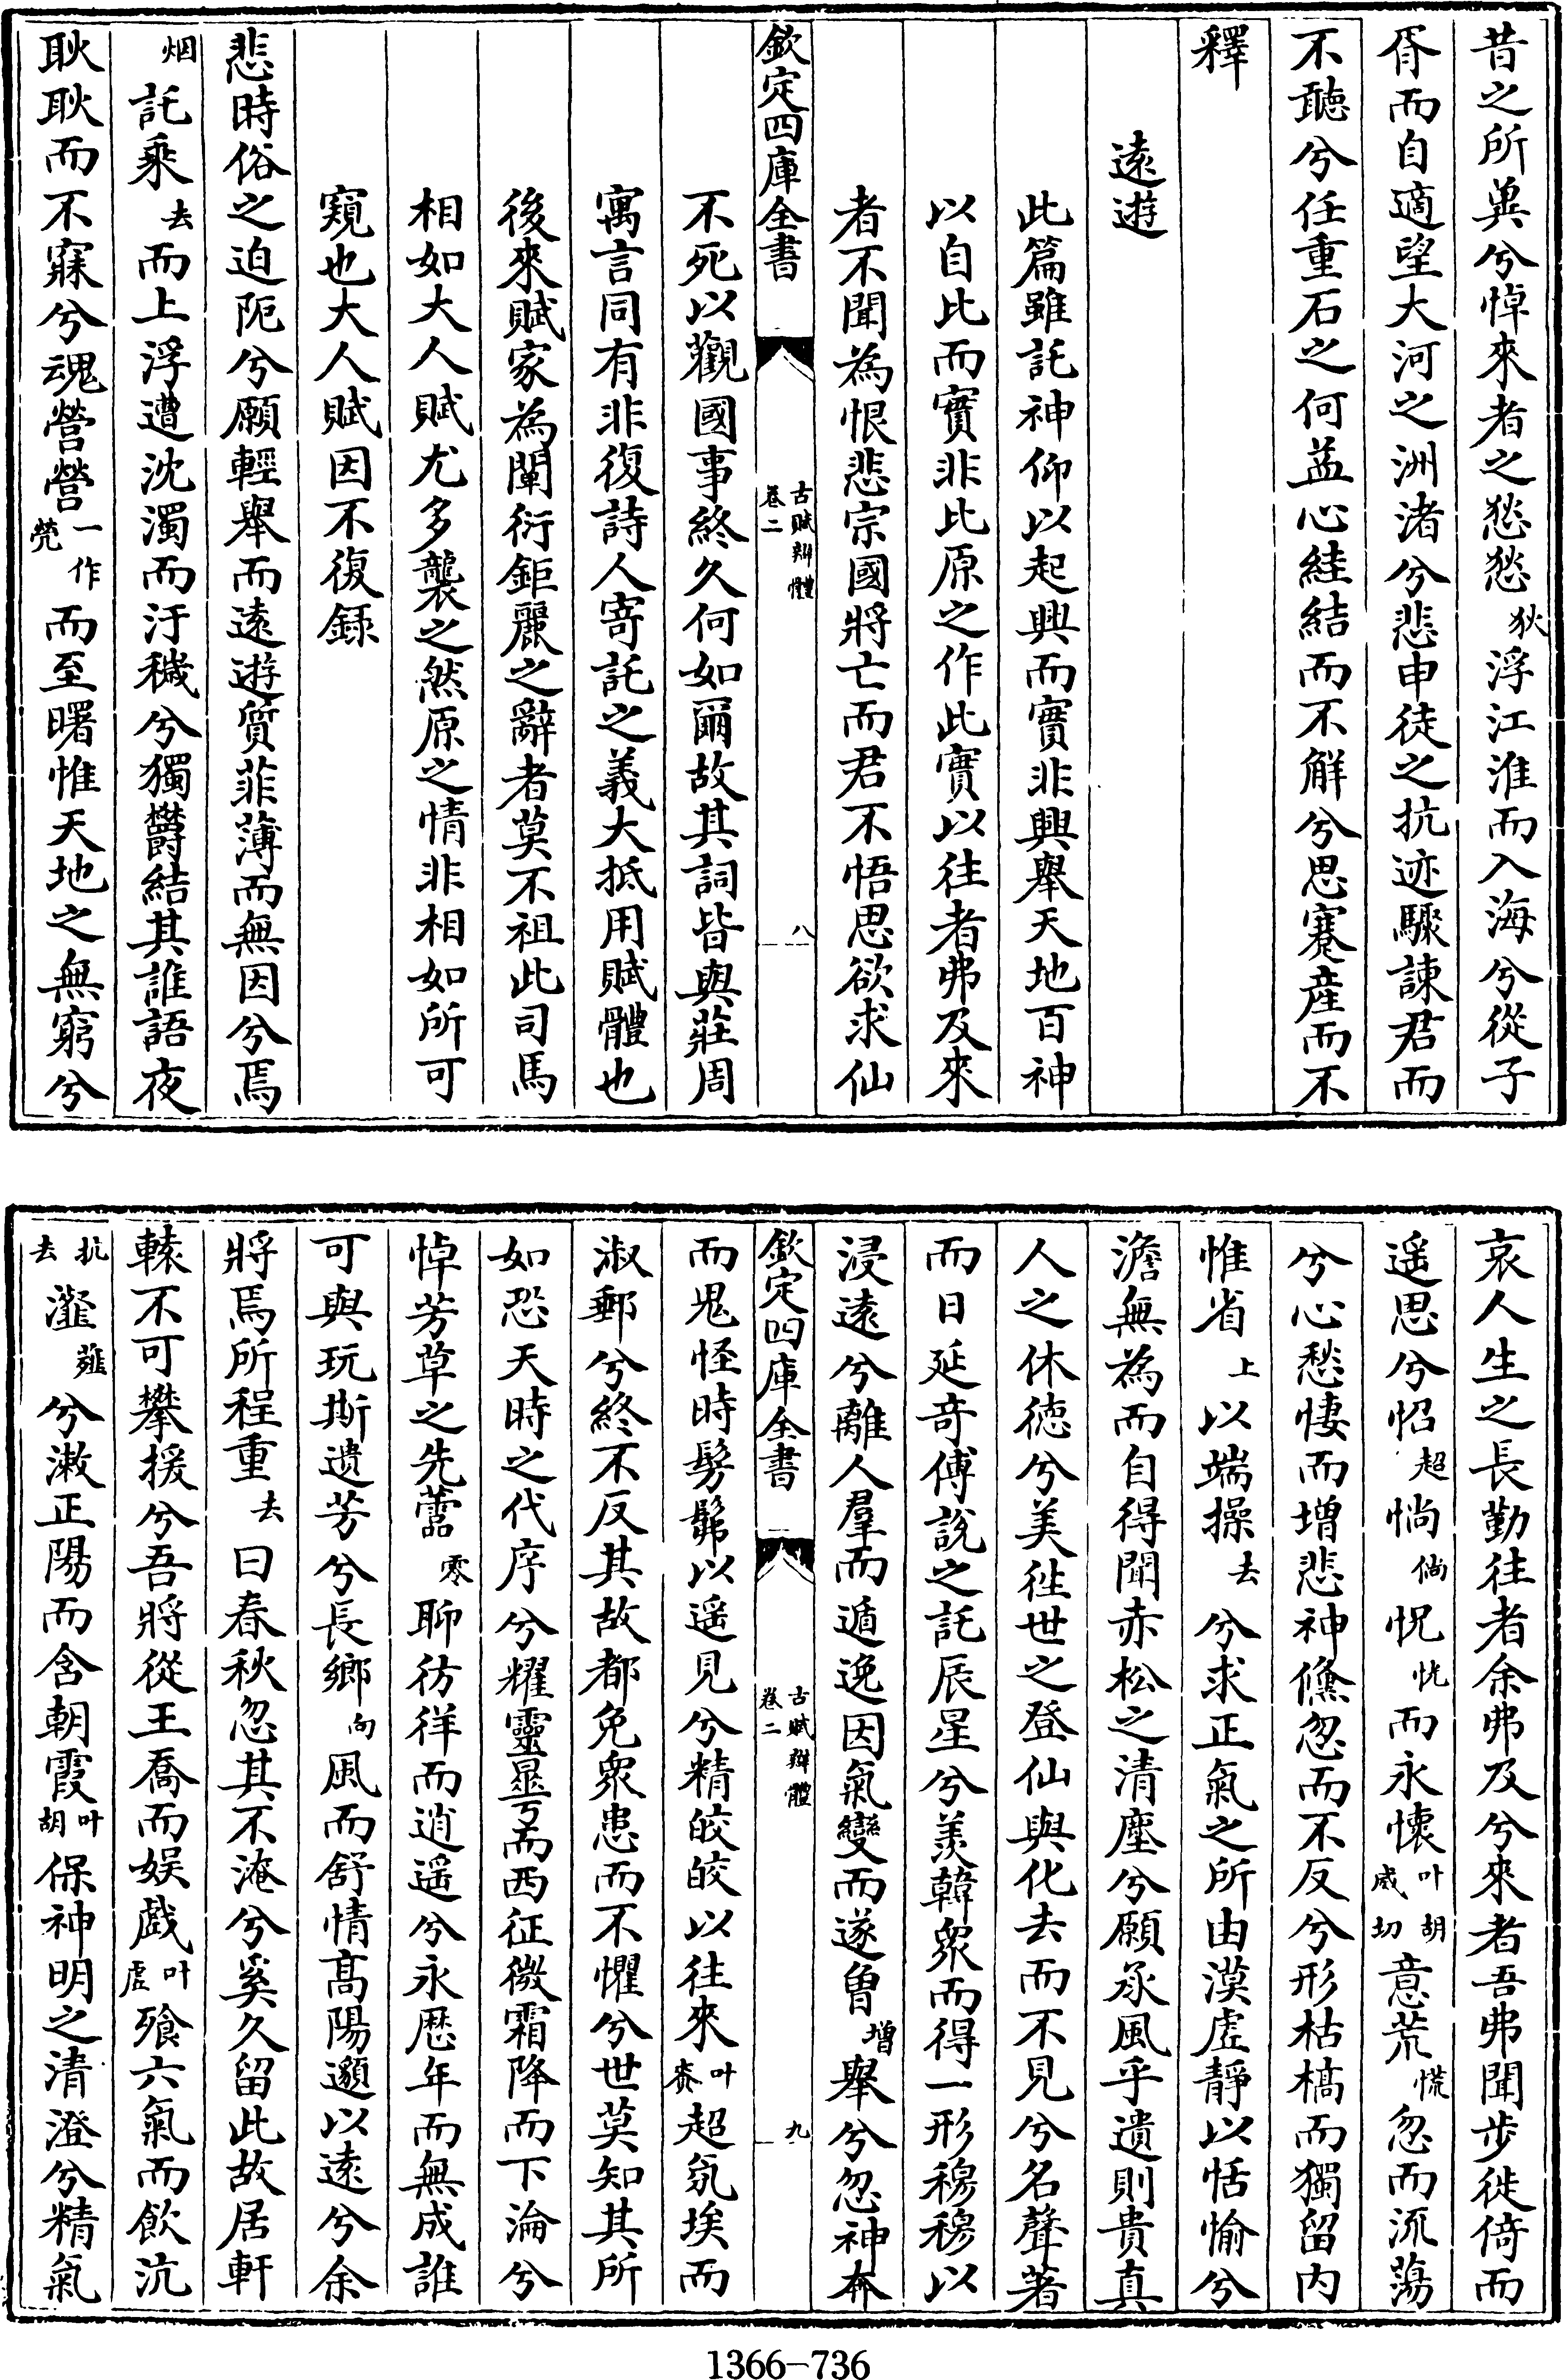 昔之所兾兮悼來者之愁愁狄浮江淮而入海兮從子
胥而自適望大河之洲渚兮悲申徒之抗迹驟諫君而
不聽兮任重石之何益心絓結而不解兮思蹇産而不
釋
逺遊
此篇雖託神仰以起興而實非興舉天地百神
以自比而實非比原之作此實以往者弗及來
者不聞為恨悲宗國將亡而君不悟思欲求仙
欽定四庫全書
古賦辨體
卷二
八
不死以觀國事終久何如爾故其詞皆與莊周
寓言同有非復詩人寄託之義大抵用賦體也
後來賦家為闡衍鉅麗之辭者莫不祖此司馬
相如大人賦尤多襲之然原之情非相如所可
窺也大人賦因不復録
悲時俗之迫阨兮願輕舉而逺遊質菲薄而無因兮焉
烟託乗去而上浮遭沈濁而汙穢兮獨鬱結其誰語夜
耿耿而不寐兮魂營營一作煢而至曙惟天地之無窮兮
哀人生之長勤往者余弗及兮來者吾弗聞步徙倚而
遥思兮怊超惝倘怳恍而永懷叶胡威切意荒慌忽而流蕩
兮心愁悽而增悲神儵忽而不反兮形枯槁而獨留内
惟省上以端操去兮求正氣之所由漠虚靜以恬愉兮
澹無為而自得聞赤松之清塵兮願承風乎遺則貴真
人之休徳兮美徃世之登仙與化去而不見兮名聲著
而日延竒傅説之託辰星兮羡韓衆而得一形穆穆以
浸逺兮離人羣而遁逸因氣變而遂曾増舉兮忽神奔
欽定四庫全書
古賦辨體
卷二
九
而鬼怪時髣髴以遥見兮精皎皎以往來叶赉超氛埃而
淑郵兮終不反其故都免衆患而不懼兮世莫知其所
如恐天時之代序兮耀靈曅而西征微霜降而下淪兮
悼芳草之先蘦零聊彷徉而逍遥兮永厯年而無成誰
可與玩斯遺芳兮長鄉向風而舒情髙陽邈以逺兮余
將焉所程重去曰春秋忽其不淹兮奚久留此故居軒
轅不可攀援兮吾將從王喬而娱戲叶虚飱六氣而飲沆
抗去瀣薤兮潄正陽而含朝霞叶胡保神明之清澄兮精氣
1366-736